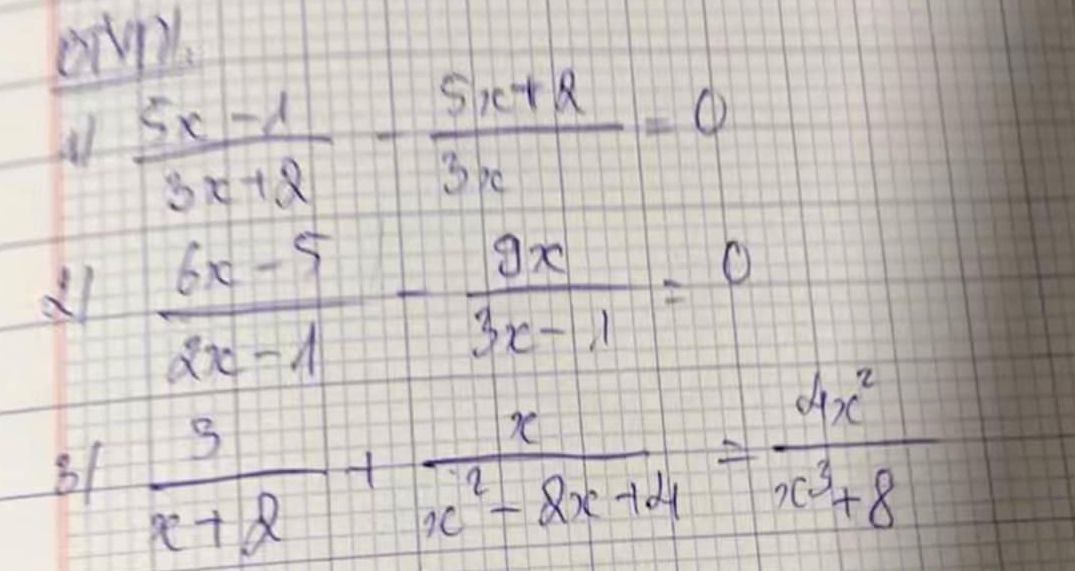 1) \frac{5x-1}{3x+2} - \frac{5x+2}{3x} = 0
2) \frac{6x-5}{2x-1} - \frac{9x}{3x-1} = 0
3) \frac{3}{x+2} + \frac{x}{x^2-2x+4} = \frac{4x^2}{x^3+8}